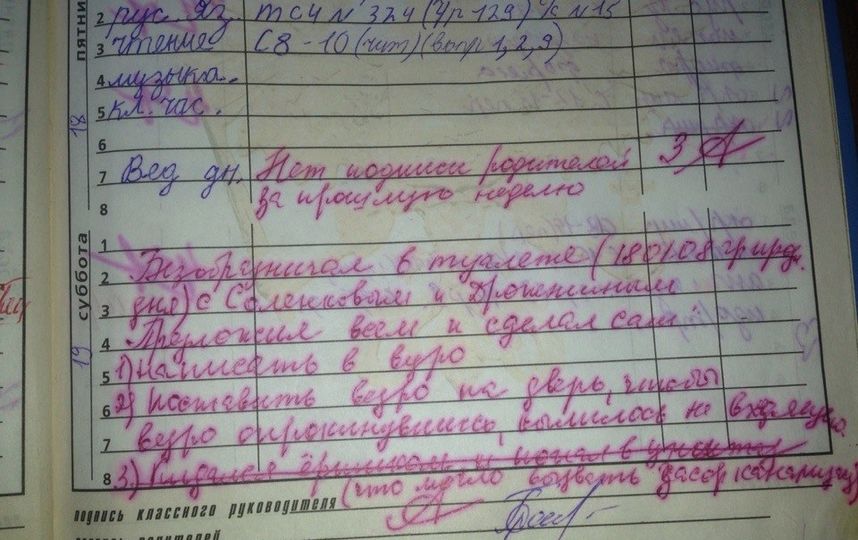 пятни
18
2 рус. яз. ТСЧ № 324 (Упр 129) Ус № 15
3 чтение С 8-10 (чит) (вопр 1, 2, 9)
4 музыка.
5 кл. час.
6
7 Вед дн. Нет подписи родителей 3
за прошлую неделю
8
суббота
19
1
Безобразничал в туалете (18 01 08 гр
2
дня) с Соленковым и Дрожжиным
3
Предложил всем и сделал сам:
4
1) написать в ведро
5
2) Поставить ведро на дверь, чтобы
6
ведро опрокинувшись, вылилось на входящего
7
3) Кидался ёршиком и попал в унитаз
8
(что могло вызвать засор канализац)
подпись классного руководителя
родителей